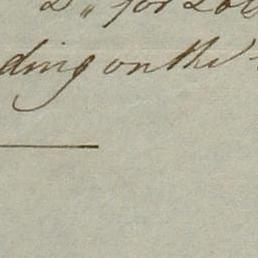 2 " for Lo
ding on the